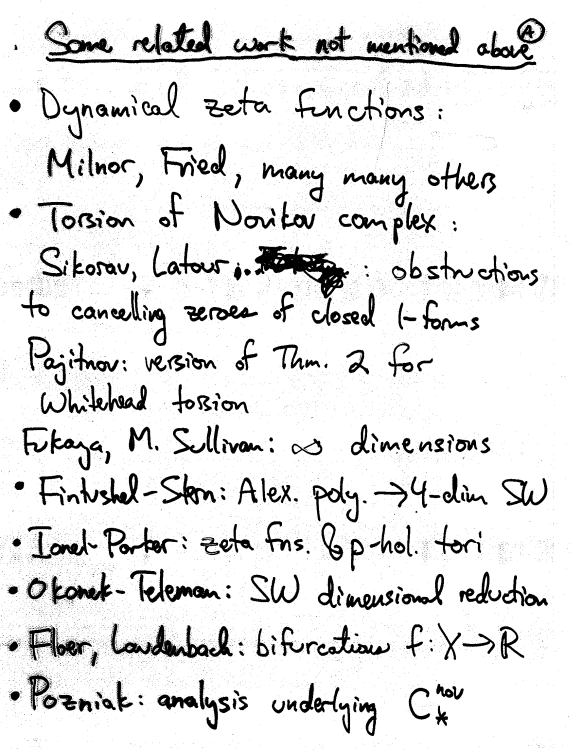 Some related work not mentioned above A
• Dynamical zeta functions:
Milnor, Fried, many many others
• Torsion of Novikov complex:
Sikorav, Latour... : obstructions
to cancelling zeroes of closed 1-forms
Pajitnov: version of Thm. 2 for
Whitehead torsion
Fukaya, M. Sullivan: ∞ dimensions
• Fintushel-Stern: Alex. poly. → 4-dim SW
• Ionel-Parker: zeta fns. & p-hol. tori
• Okonek-Teleman: SW dimensional reduction
• Floer, Laudenbach: bifurcations f: X → R
• Pozniak: analysis underlying C_*^nov